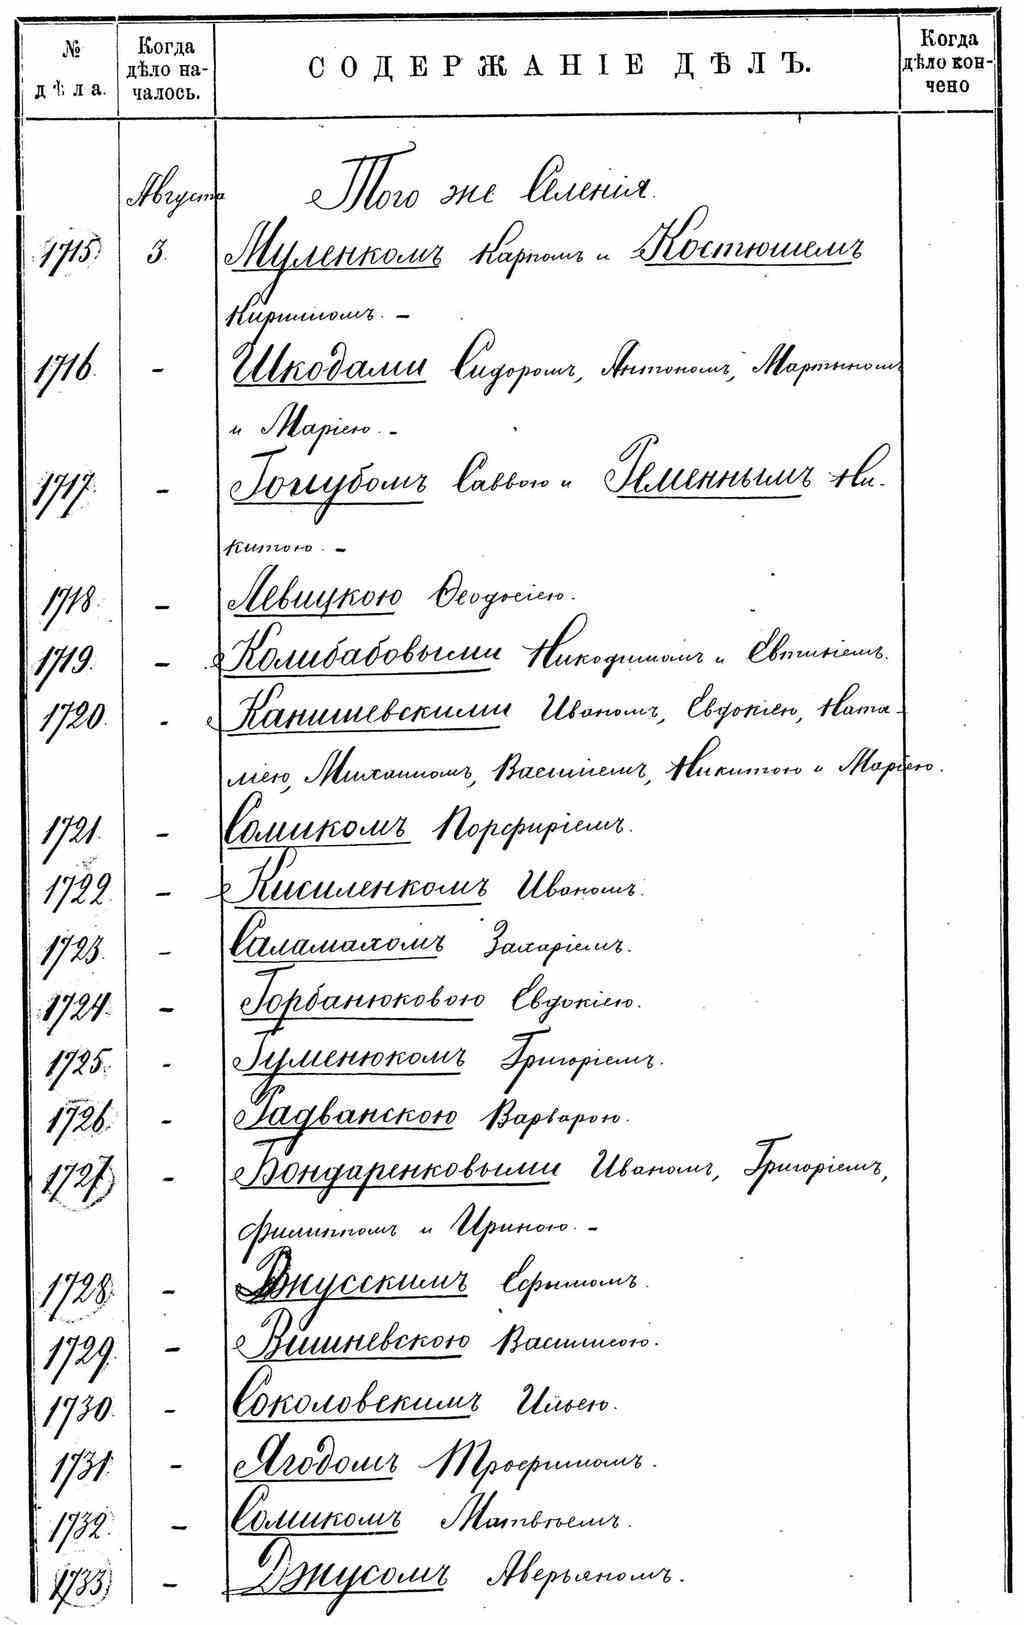 № дѣла.
Когда дѣло на-
чалось.
СОДЕРЖАНІЕ ДѢЛЪ.
Когда дѣло кон-
чено
Августа Того же Селенія.
1715 3. Муленкомъ Карпомъ и Костюшемъ
Кириломъ. –
1716. – Шкодами Сидоромъ, Антономъ, Мартыномъ
и Маріею. –
1717. – Голубомъ Саввою и Ременнымъ Ни-
китою. –
1718. – Левицкою Ѳеодосіею.
1719. – Колибабовыми Никодимомъ и Евтихіемъ.
1720. – Канишевскими Иваномъ, Евдокіею, Ната-
ліею, Михаиломъ, Василіемъ, Никитою и Маріею.
1721. – Сомикомъ Порфиріемъ.
1722. – Кисиленкомъ Иваномъ.
1723. – Саламахомъ Захаріемъ.
1724. – Горбанюковою Евдокіею.
1725. – Гуменюкомъ Григоріемъ.
1726. – Радванскою Варварою.
1727 – Бондаренковыми Иваномъ, Григоріемъ,
Филиппомъ и Ириною. –
1728. – Джусскимъ Ефимомъ.
1729. – Вишневскою Василисою.
1730. – Соколовскимъ Ильею.
1731. – Ягодомъ Трофимомъ.
1732. – Сомикомъ Матвѣемъ.
1733 – Джусомъ Аверьяномъ.